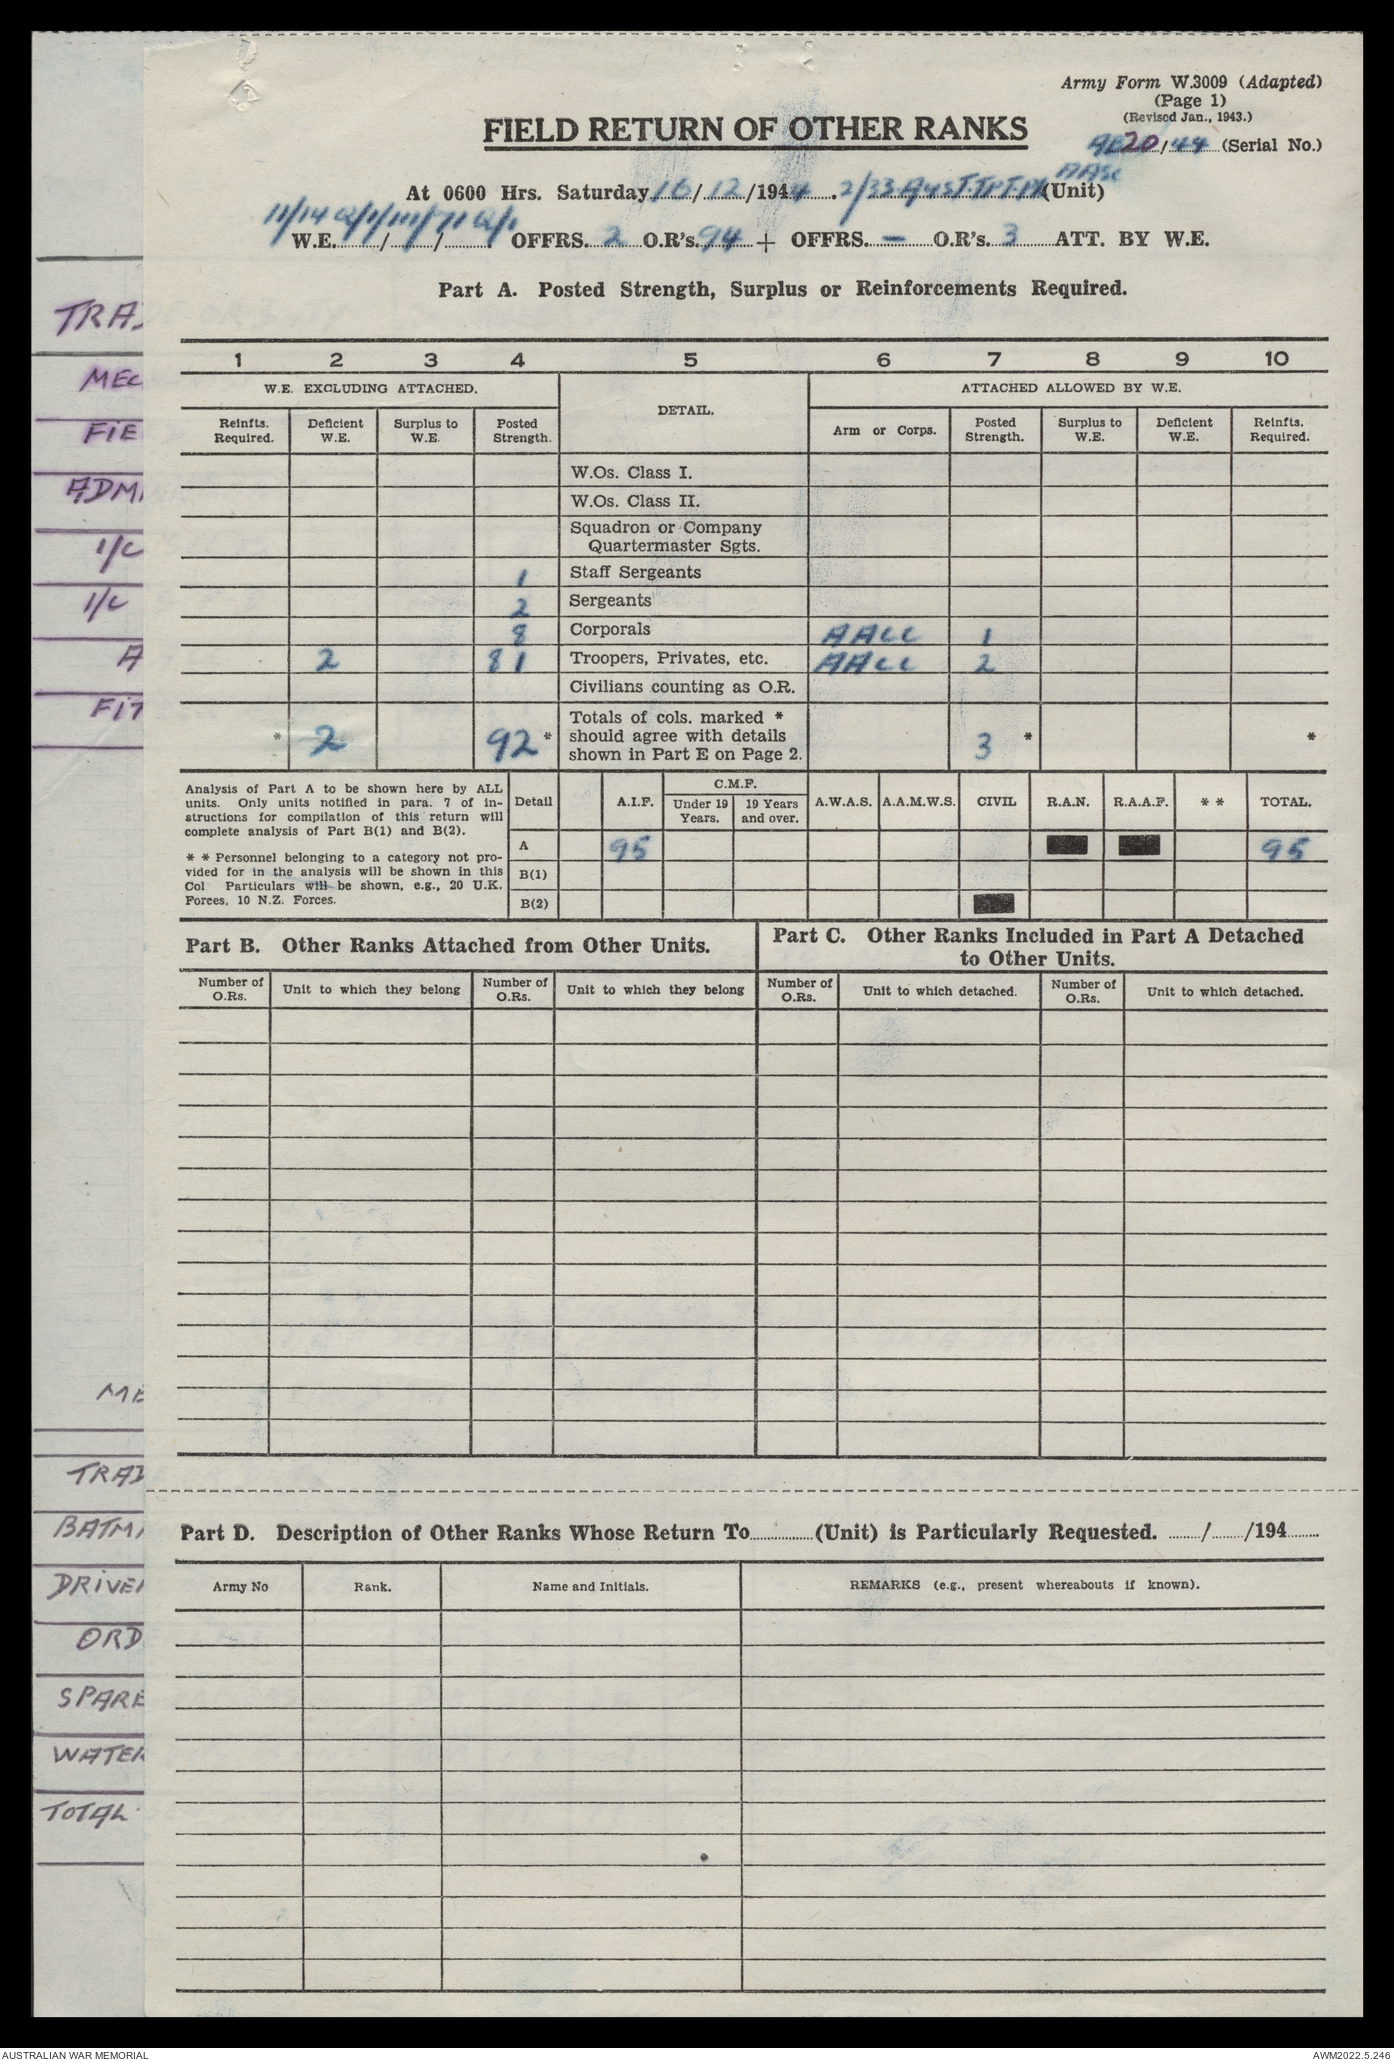 Army Form W.3009 (Adapted)
(Page 1)
(Revised Jan., 1943.)
FIELD RETURN OF OTHER RANKS
20/44 (Serial No.)
AASC
At 0600 Hrs. Saturday 16/12/1944. 2/33 AUST.TPT.PL (Unit)
W.E. / / OFFRS. 2 O.R's. 94 + OFFRS. – O.R's. 3 ATT. BY W.E.
Part A. Posted Strength, Surplus or Reinforcements Required.
1 2 3 4 5 6 7 8 9 10
W.E. EXCLUDING ATTACHED. DETAIL. ATTACHED ALLOWED BY W.E.
Reinfts. Required. Deficient W.E. Surplus to W.E. Posted Strength. Arm or Corps. Posted Strength. Surplus to W.E. Deficient W.E. Reinfts. Required.
W.Os. Class I.
W.Os. Class II.
Squadron or Company
Quartermaster Sgts.
1 Staff Sergeants
2 Sergeants
8 Corporals AACC 1
2 81 Troopers, Privates, etc. AACC 2
Civilians counting as O.R.
Totals of cols. marked *
* 2 92 * should agree with details 3 * *
shown in Part E on Page 2.
Analysis of Part A to be shown here by ALL
units. Only units notified in para. 7 of in-
structions for compilation of this return will
complete analysis of Part B(1) and B(2).
* * Personnel belonging to a category not pro-
vided for in the analysis will be shown in this
Col Particulars will be shown, e.g., 20 U.K.
Forces, 10 N.Z. Forces.
Detail A.I.F. C.M.F. Under 19 Years. 19 Years and over. A.W.A.S. A.A.M.W.S. CIVIL R.A.N. R.A.A.F. * * TOTAL.
A 95 95
B(1)
B(2)
Part B. Other Ranks Attached from Other Units.
Part C. Other Ranks Included in Part A Detached
to Other Units.
Number of O.Rs. Unit to which they belong Number of O.Rs. Unit to which they belong Number of O.Rs. Unit to which detached. Number of O.Rs. Unit to which detached.
Part D. Description of Other Ranks Whose Return To (Unit) is Particularly Requested. / /194
Army No Rank. Name and Initials. REMARKS (e.g., present whereabouts if known).
TRA
MEC
FIE
ADMI
I/C
I/C
A
FIT
ME
TRAD
BATM
DRIVE
ORD
SPARE
WATER
TOTAL
AUSTRALIAN WAR MEMORIAL
AWM2022.5.246